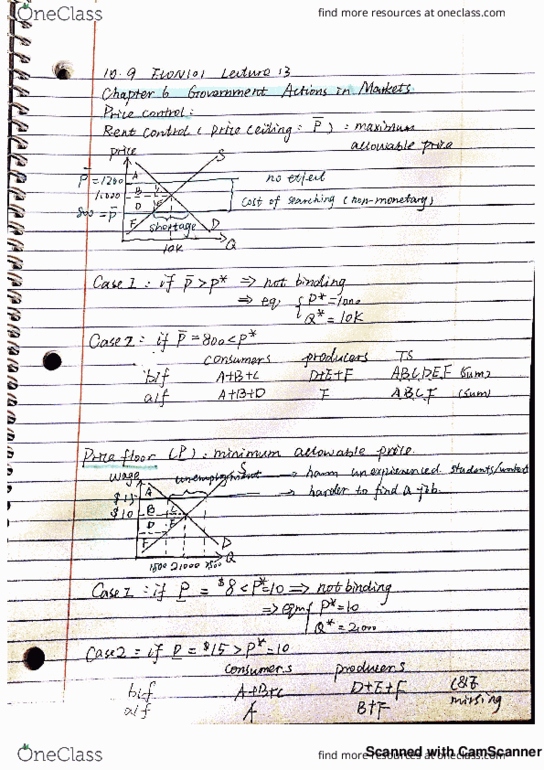 OneClass
find more resources at oneclass.com
10.9 ECON101 Lecture 13
Chapter 6 Government Actions in Markets
Price control:
Rent control (price ceiling: P̄) : maximum
allowable price
price
S
P̄ = 1200
A
no effect
1,000
B
C
cost of searching (non-monetary)
800 = P̄
D
E
F
shortage
D
10K
Q
Case 1 : if P̄ > P* ⇒ not binding
⇒ eq. { P* = 1000
Q* = 10K
Case 2 : if P̄ = 800 < P*
consumers producers TS
bif A+B+C D+E+F A,B,C,D,E,F (sum)
aif A+B+D F A,B,D,F (sum)
Price floor (P) : minimum allowable price.
wage
unemployment
S
→ harm unexperienced students/workers
$15
A
→ harder to find a job.
$10
B
C
D
E
F
D
1500 2000 2500
Q
Case 1 : if P = $8 < P*=10 ⇒ not binding
⇒ eqm { P* = 10
Q* = 2,000
Case 2 = if P = $15 > P* = 10
consumers producers
bif A+B+C D+E+F C&E
aif A B+F missing
OneClass
find more resources at oneclass.com
Scanned with CamScanner